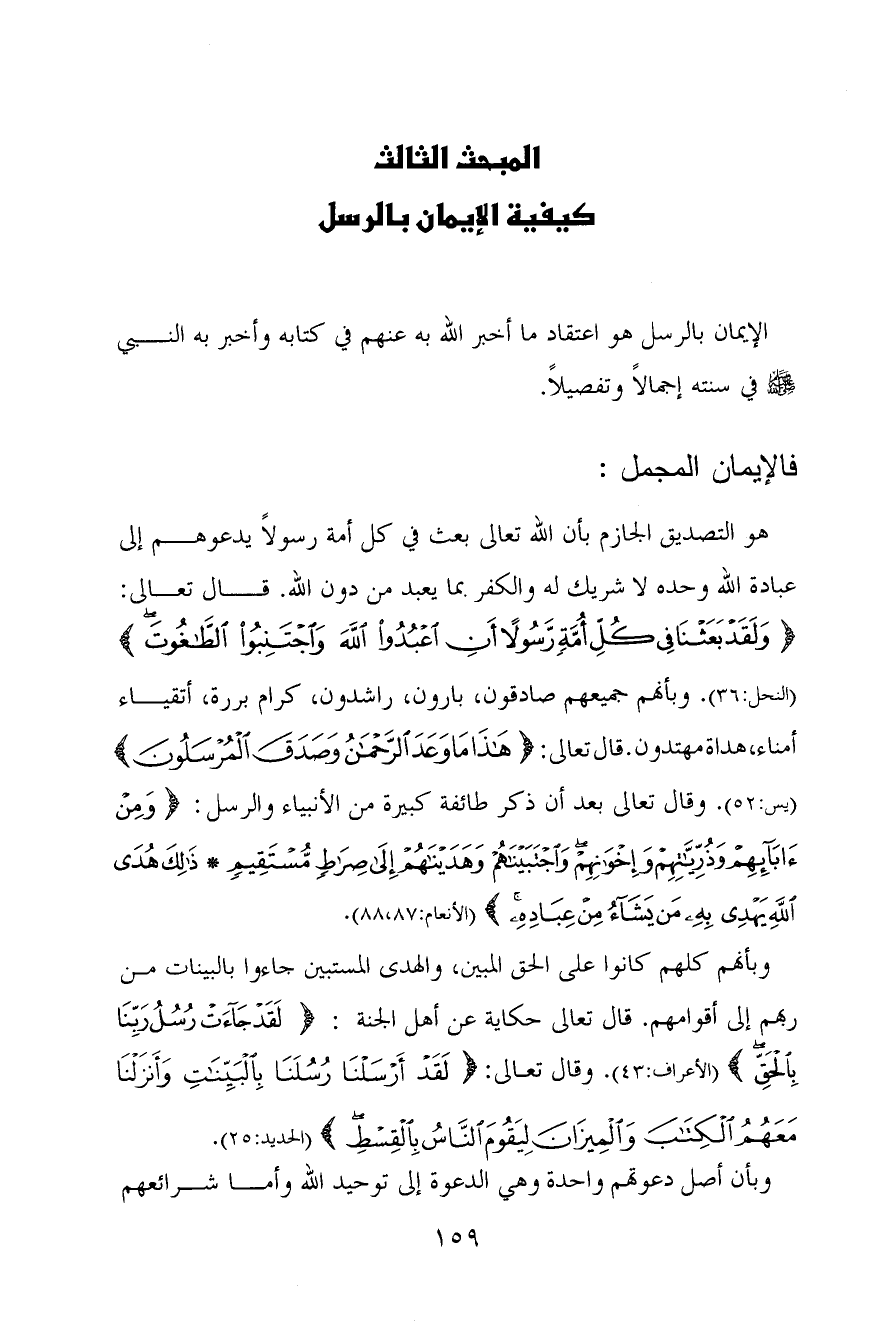 المبحث الثالث
كيفية الإيمان بالرسل
الإيمان بالرسل هو اعتقاد ما أخبر الله به عنهم في كتابه وأخبر به النبي
ﷺ في سنته إجمالاً وتفصيلاً.
فالإيمان المجمل :
هو التصديق الجازم بأن الله تعالى بعث في كل أمة رسولاً يدعوهم إلى
عبادة الله وحده لا شريك له والكفر بما يعبد من دون الله. قال تعالى:
﴿ وَلَقَدْ بَعَثْنَا فِى كُلِّ أُمَّةٍ رَّسُولًا أَنِ ٱعْبُدُوا۟ ٱللَّهَ وَٱجْتَنِبُوا۟ ٱلطَّـٰغُوتَ ۖ ﴾
(النحل:٣٦). وبأنهم جميعهم صادقون، بارون، راشدون، كرام بررة، أتقياء
أمناء، هداة مهتدون. قال تعالى: ﴿ هَـٰذَا مَا وَعَدَ ٱلرَّحْمَـٰنُ وَصَدَقَ ٱلْمُرْسَلُونَ ﴾
(يس:٥٢). وقال تعالى بعد أن ذكر طائفة كبيرة من الأنبياء والرسل: ﴿ وَمِنْ
ءَابَآئِهِمْ وَذُرِّيَّـٰتِهِمْ وَإِخْوَٰنِهِمْ ۖ وَٱجْتَبَيْنَـٰهُمْ وَهَدَيْنَـٰهُمْ إِلَىٰ صِرَٰطٍ مُّسْتَقِيمٍ * ذَٰلِكَ هُدَى
ٱللَّهِ يَهْدِى بِهِۦ مَن يَشَآءُ مِنْ عِبَادِهِۦ ۚ ﴾ (الأنعام:٨٨،٨٧).
وبأنهم كلهم كانوا على الحق المبين، والهدى المستبين جاءوا بالبينات من
ربهم إلى أقوامهم. قال تعالى حكاية عن أهل الجنة : ﴿ لَقَدْ جَآءَتْ رُسُلُ رَبِّنَا
بِٱلْحَقِّ ۖ ﴾ (الأعراف:٤٣). وقال تعالى: ﴿ لَقَدْ أَرْسَلْنَا رُسُلَنَا بِٱلْبَيِّنَـٰتِ وَأَنزَلْنَا
مَعَهُمُ ٱلْكِتَـٰبَ وَٱلْمِيزَانَ لِيَقُومَ ٱلنَّاسُ بِٱلْقِسْطِ ۖ ﴾ (الحديد:٢٥).
وبأن أصل دعوتهم واحدة وهي الدعوة إلى توحيد الله وأما شرائعهم
١٥٩